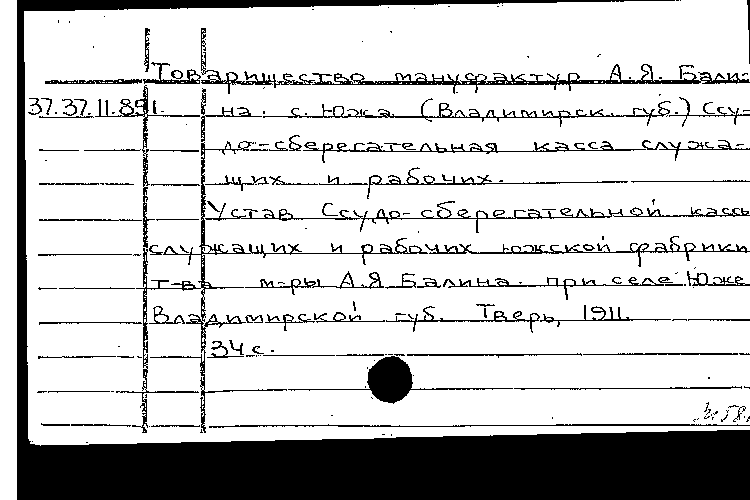 Товарищество мануфактур А.Я. Бали
37.37.11.851. на. с. Южа (Владимирск. губ.) Ссу-
до-сберегательная касса служа-
щих и рабочих.
Устав Ссудо-сберегательной кассы
служащих и рабочих южской фабрики
т-ва м-ры А.Я Балина. при селе Юже
Владимирской губ. Тверь, 1911.
34 с.